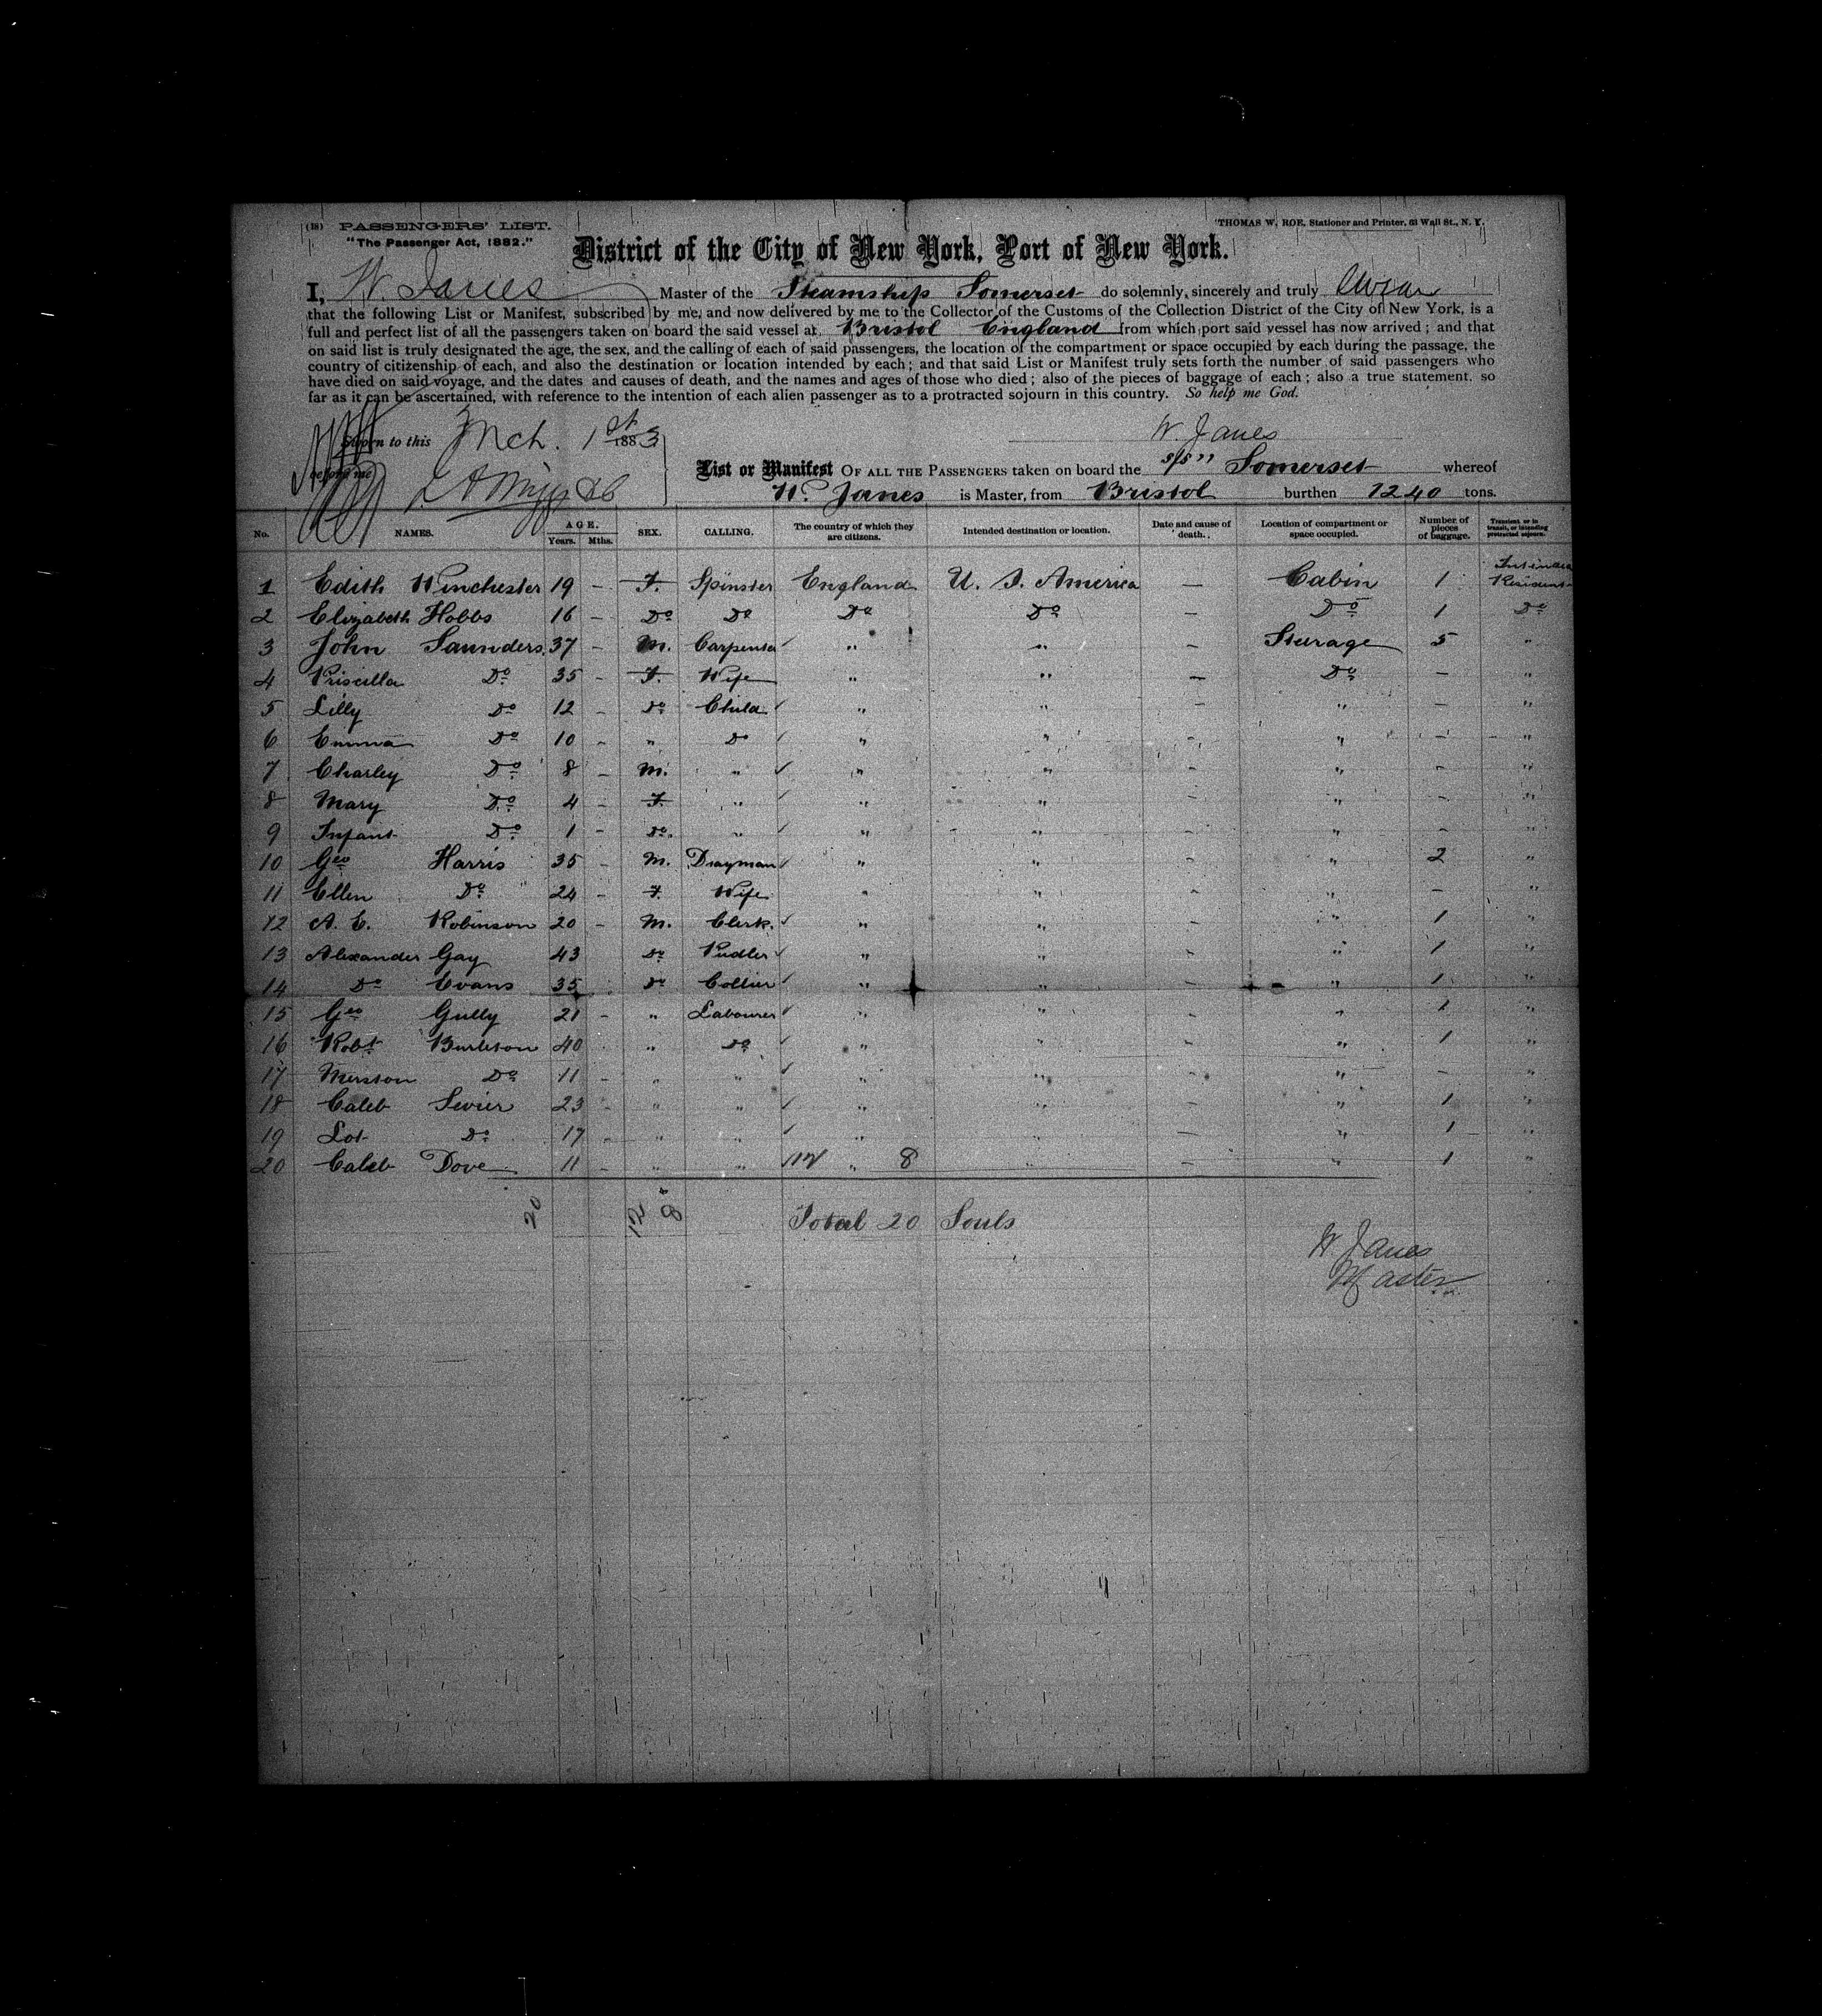 (18) PASSENGERS' LIST.
"The Passenger Act, 1882."
THOMAS W. ROE, Stationer and Printer, 61 Wall St., N. Y.
District of the City of New York, Port of New York.
I, W. Janes Master of the Steamship Somerset do solemnly, sincerely and truly swear
that the following List or Manifest, subscribed by me, and now delivered by me to the Collector of the Customs of the Collection District of the City of New York, is a
full and perfect list of all the passengers taken on board the said vessel at Bristol England from which port said vessel has now arrived; and that
on said list is truly designated the age, the sex, and the calling of each of said passengers, the location of the compartment or space occupied by each during the passage, the
country of citizenship of each, and also the destination or location intended by each; and that said List or Manifest truly sets forth the number of said passengers who
have died on said voyage, and the dates and causes of death, and the names and ages of those who died; also of the pieces of baggage of each; also a true statement, so
far as it can be ascertained, with reference to the intention of each alien passenger as to a protracted sojourn in this country. So help me God.
Sworn to this Mch. 1st 1883
W. Janes
before me
List or Manifest OF ALL THE PASSENGERS taken on board the S/S" Somerset whereof
W. Janes is Master, from Bristol burthen 1240 tons.
No. NAMES. AGE. Years. Mths. SEX. CALLING. The country of which they are citizens. Intended destination or location. Date and cause of death. Location of compartment or space occupied. Number of pieces of baggage. Transient or in transit, or intending protracted sojourn.
1 Edith Winchester 19 - F. Spinster England U. S. America — Cabin 1 Resident
2 Elizabeth Hobbs 16 - Do Do Do Do - Do 1 Do
3 John Saunders. 37 - M. Carpenter " " - Steerage 5 "
4 Priscilla Do 35 - F. Wife " " - Do - "
5 Lilly Do 12 - Do Child " " - " - "
6 Emma Do 10 - " Do " " - " - "
7 Charley Do 8 - M. " " " - " - "
8 Mary Do 4 - F. " " " - " - "
9 Infant Do 1 - Do. " " " - " - "
10 Geo Harris 35 - M. Drayman " " - " 2 "
11 Ellen Do 24 - F. Wife " " - " - "
12 A. E. Robinson 20 - M. Clerk. " " - " 1 "
13 Alexander Gay 43 Do Pudler " " - " 1 "
14 Do Evans 35 Do Collier " " - " 1 "
15 Geo Gully 21 - " Labourer " " - " 1 "
16 Robt Burleton 40 " Do " " - " 1 "
17 Do 11 - " " " " - " - "
18 Caleb Sevier 23 " " " " - " 1 "
19 Lot Do 17 - " " " " — " 1 "
20 Caleb Dove 11 - " " 12 " 8 " — " 1 "
20 12 8 Total 20 Souls
W. Janes
Master